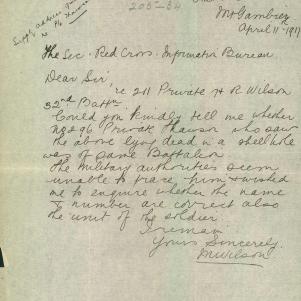 Supply address
re Pte
205-54
Mt Gambier
April 11-1917
The Sec. Red Cross. Information Bureau.
Dear Sir,
re 211 Private H R Wilson
32nd Battn
Could you kindly tell me whether
Private who saw
the above lying dead in a shell hole
was of same Battalion
The military authorities seem
unable to trace him & wished
me to enquire whether the name
& number are correct also
the unit of the soldier.
I remain
Yours Sincerely.
M Wilson